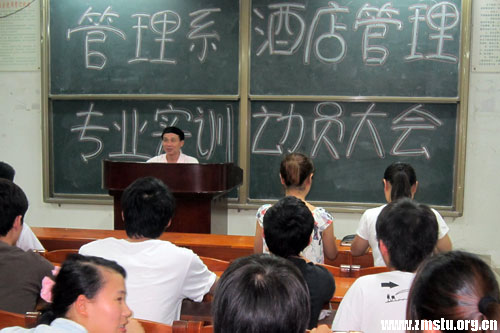 管理系 酒店管理
专业实训 动员大会
www.zmstu.org.cn